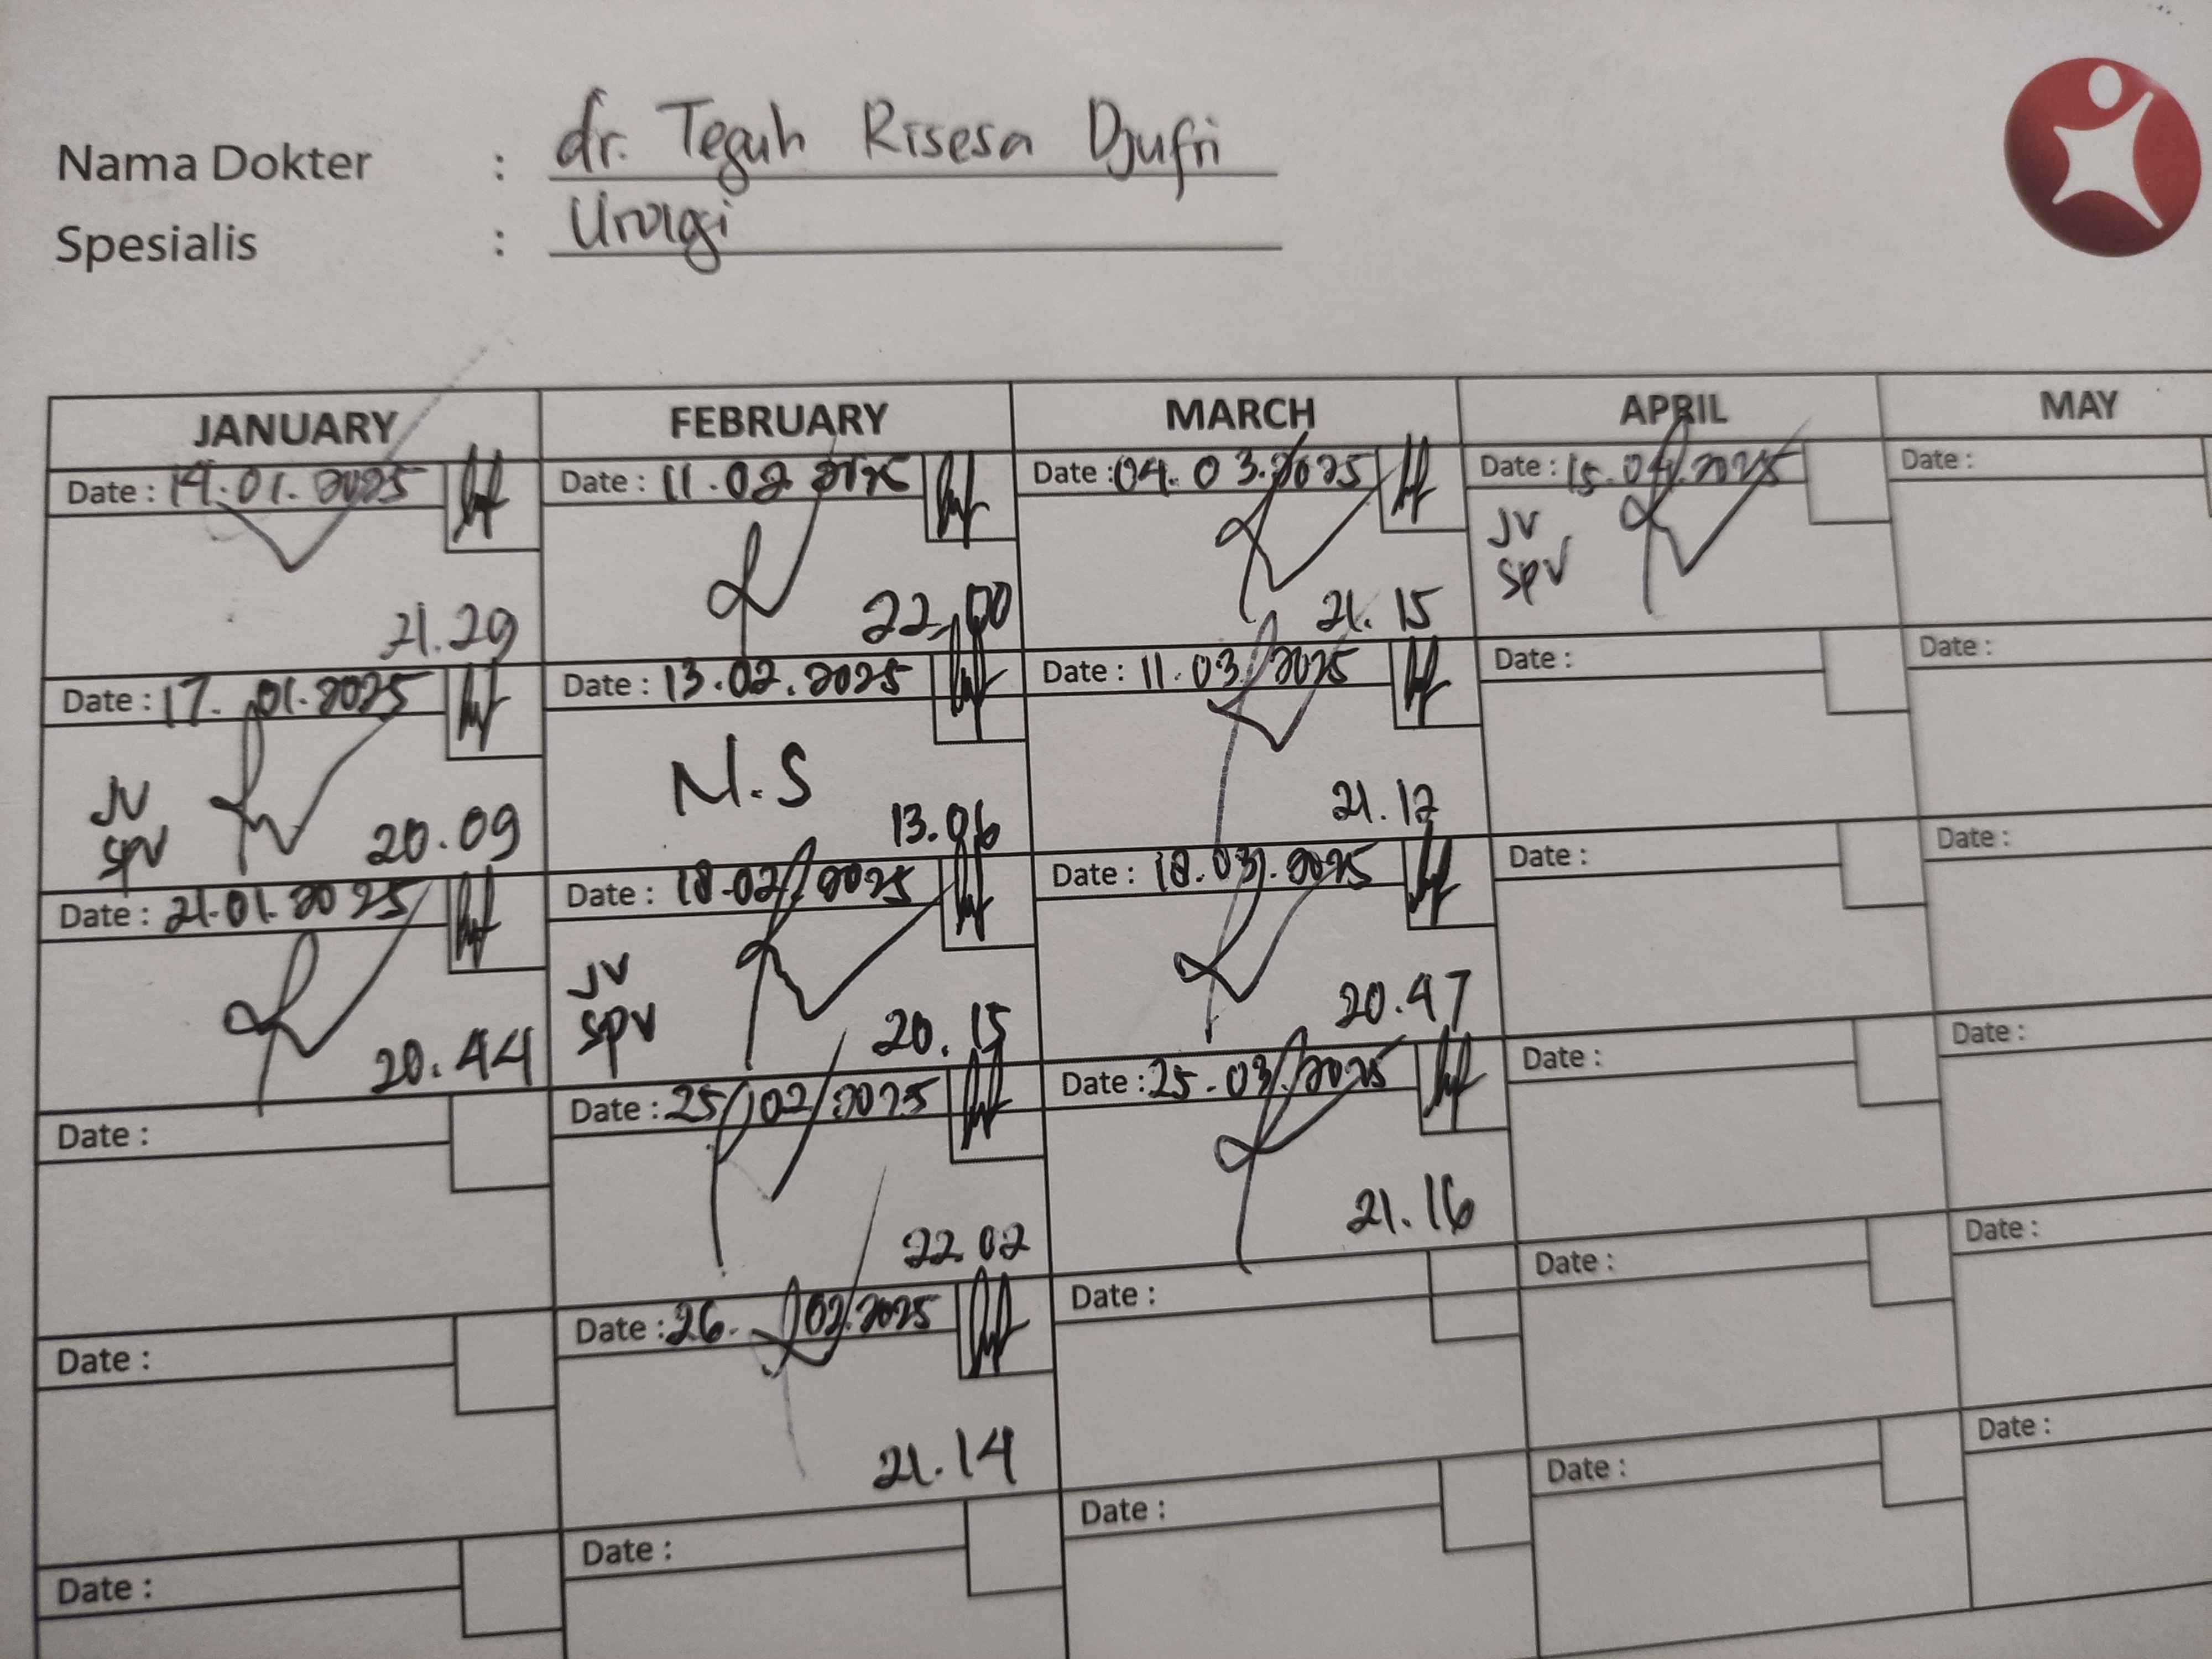 Nama Dokter : dr. Teguh Risesa Djufri
Spesialis : Urologi
JANUARY FEBRUARY MARCH APRIL MAY
Date : 14.01.2025
21.29
Date : 11.02.2025
22.00
Date : 04.03.2025
21.15
Date : 15.04.2025
JV
SPV
Date :
Date : 17.01.2025
JV
SPV
20.09
Date : 13.02.2025
N.S
13.06
Date : 11.03.2025
21.12
Date :
Date :
Date : 21.01.2025
20.44
Date : 18.02.2025
JV
SPV
20.15
Date : 18.03.2025
20.47
Date :
Date :
Date :
Date : 25/02/2025
22.02
Date : 25.03.2025
21.16
Date :
Date :
Date :
Date : 26.02.2025
21.14
Date :
Date :
Date :
Date :
Date :
Date :
Date :
Date :